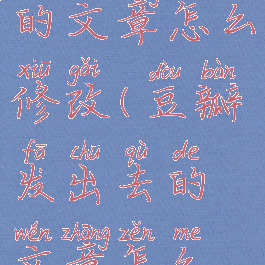 的文章怎么
xiū gǎi dòu bàn
修改(豆瓣
fā chū qù de
发出去的
wén zhāng zěn me
文章怎么